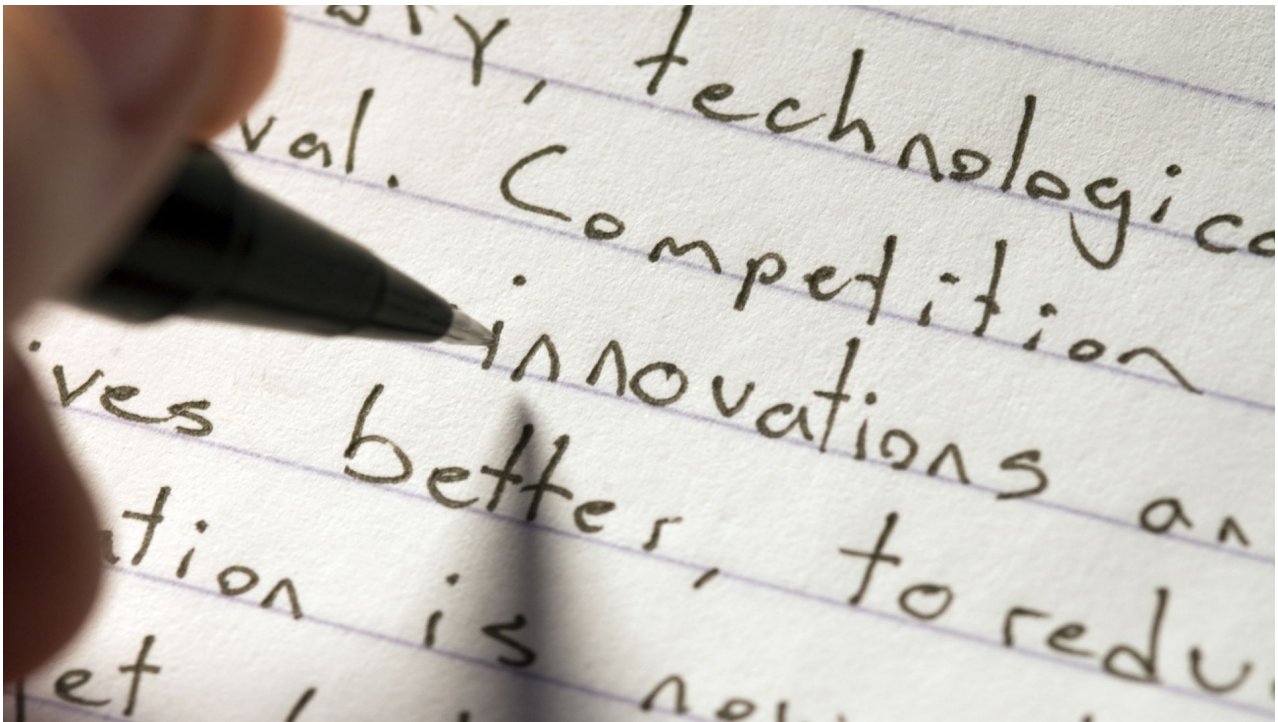 technologic
val. Competition
innovations an
ves better, to redu
ation is now
et